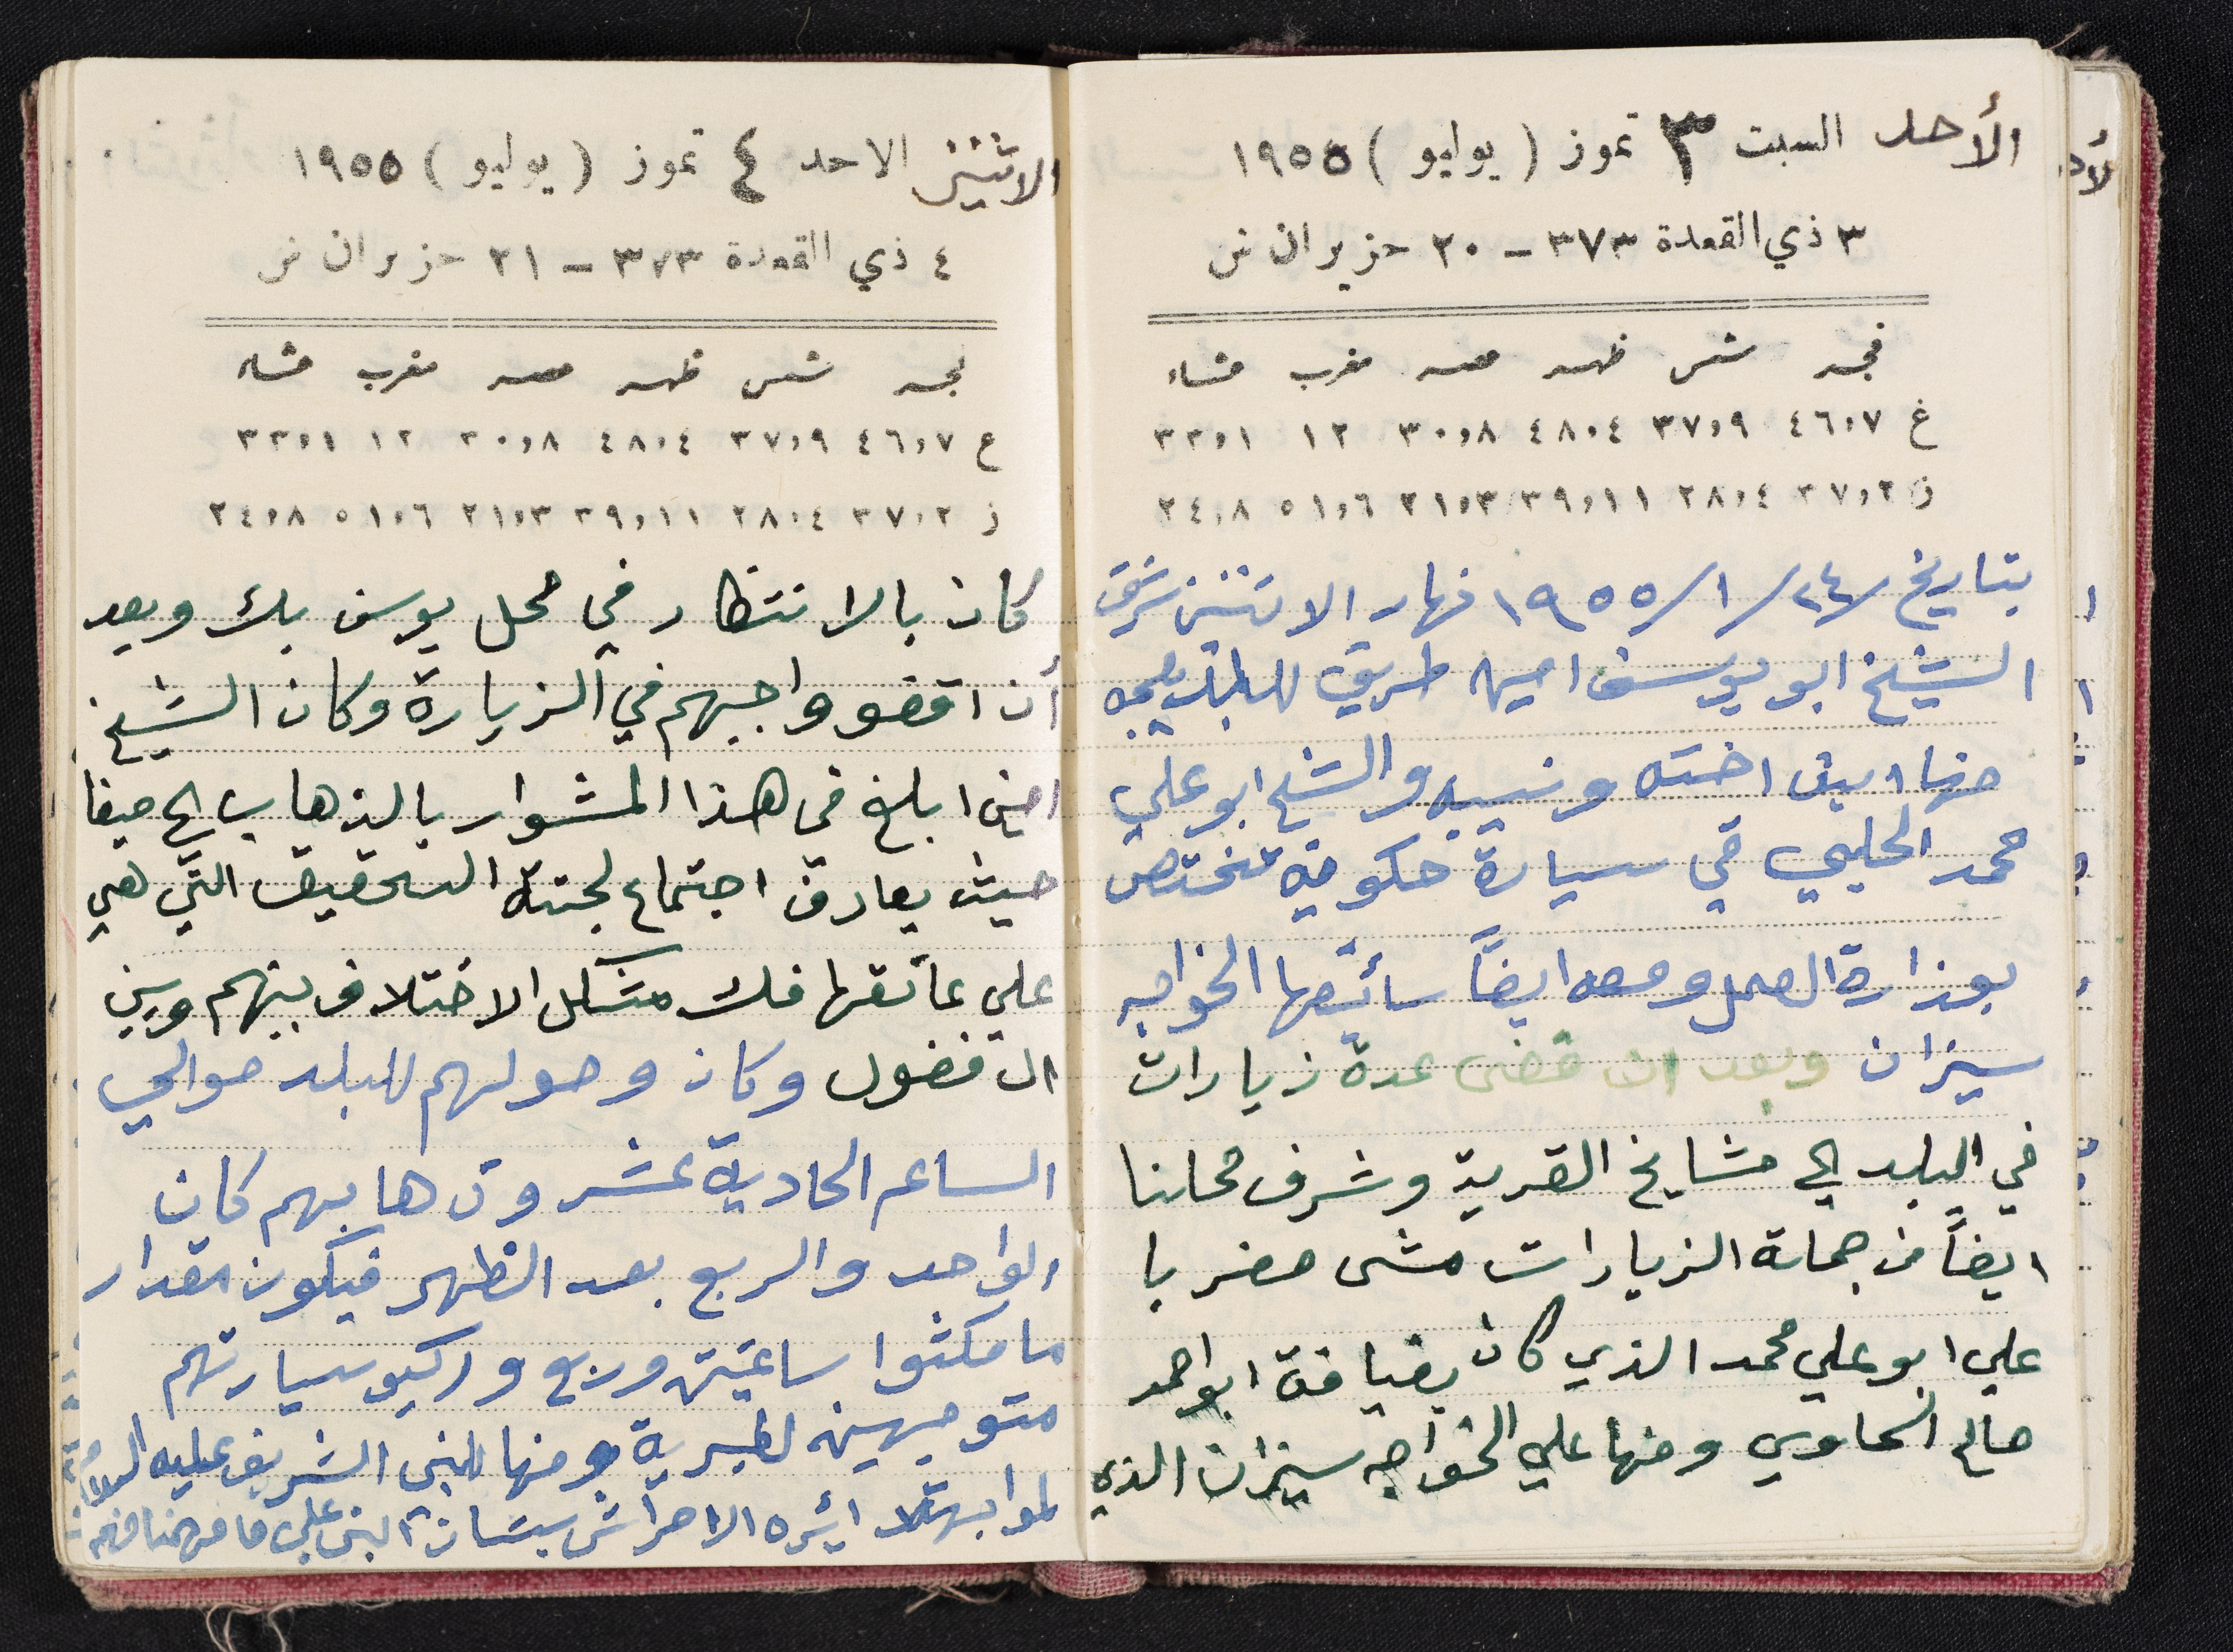 الأحد السبت ٣ تموز (يوليو) ١٩٥٥
٣ ذي القعدة ٣٧٣ - ٢٠ حزيران ش
فجر شمس ظهر عصر مغرب عشاء
غ ٤٦،٧ ٣٧،٩ ٤٨،٤ ٣٠،٨ ١٢ ٣٣،١
ز ٣٧،٢ ٢٨،٤ ٣٩،١١ ٢١،٣ ٥١،٦ ٢٤،٨
بتاريخ ٢٤/١/١٩٥٥ نهار الاثنين شرف
الشيخ ابو يوسف امين طريف للبلد بمعيته
منها ايضا اخته ونسيبه والشيخ ابو علي
محمد الحلبي في سيارة حكومية تختص
بوزارة العمل ومعه ايضاً سائقها الخواجه
سيزان وبعد ان قضى عدة زيارات
في البلد الى مشايخ القرية وشرف محلنا
ايضاً من جملة الزيارات مشى مغربا
علي ابو علي محمد الذي كان بضيافة ابو احمد
صالح الحاوي ومنها علي الخواجه سيزان الذي
الاثنين الاحد ٤ تموز (يوليو) ١٩٥٥
٤ ذي القعدة ٣٧٣ - ٢١ حزيران ش
فجر شمس ظهر عصر مغرب عشاء
غ ٤٦،٧ ٣٧،٩ ٤٨،٤ ٣٠،٨ ١٢ ٣٣،١
ز ٣٧،٢ ٢٨،٤ ٣٩،١١ ٢١،٣ ٥١،٦ ٢٤،٨
كان بالانتظار في محل يوسف بك وبعد
أن اقضو واجبهم في الزيارة وكان الشيخ
امين ابلغ في هذا المشوار بالذهاب الى حيفا
حيث يصادف اجتماع لجنة التحقيق التي هي
على عاتقها فك مشكل الاختلاف بينهم وبين
ال فضول وكان وصولهم للبلد حوالي
الساعه الحادية عشر وذهابهم كان
الواحد والربع بعد الظهر فيكون مقدار
ما مكثوا ساعتين وربع وركبو سيارتهم
متوجهين لطبرية ومنها للنبي الشريف عليه السلام
لمواجهة دائره الاحراش بشان النبي علي ما فهمنا منهم